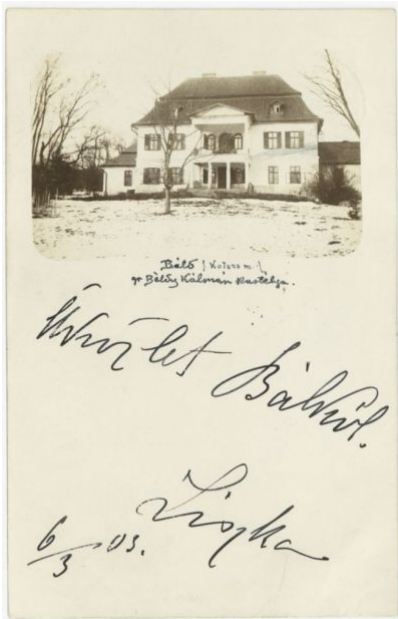 Báló (Kolozs m.)
gr Béldy Kálmán kastélya.
Üdvözlet
Bálóról.
Liszka
6/3 03.